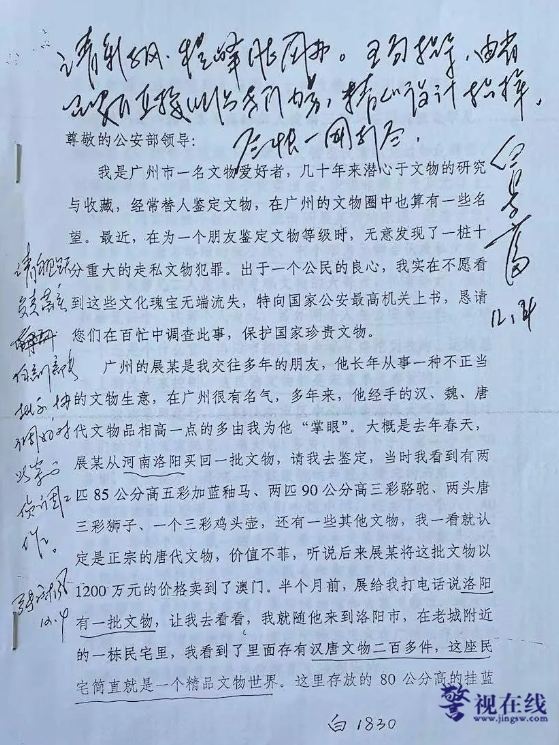 尊敬的公安部领导:
我是广州市一名文物爱好者，几十年来潜心于文物的研究
与收藏，经常替人鉴定文物，在广州的文物圈中也算有一些名
望。最近，在为一个朋友鉴定文物等级时，无意发现了一桩十
分重大的走私文物犯罪。出于一个公民的良心，我实在不愿看
到这些文化瑰宝无端流失，特向国家公安最高机关上书，恳请
您们在百忙中调查此事，保护国家珍贵文物。
广州的展某是我交往多年的朋友，他长年从事一种不正当
的文物生意，在广州很有名气，多年来，他经手的汉、魏、唐
代文物品相高一点的多由我为他“掌眼”。大概是去年春天，
展某从河南洛阳买回一批文物，请我去鉴定，当时我看到有两
匹 85 公分高五彩加蓝釉马、两匹 90 公分高三彩骆驼、两头唐
三彩狮子、一个三彩鸡头壶，还有一些其他文物，我一看就认
定是正宗的唐代文物，价值不菲，听说后来展某将这批文物以
1200 万元的价格卖到了澳门。半个月前，展给我打电话说洛阳
有一批文物，让我去看看，我就随他来到洛阳市，在老城附近
的一栋民宅里，我看到了里面存有汉唐文物二百多件，这座民
宅简直就是一个精品文物世界。这里存放的 80 公分高的挂蓝
1830
警视在线
www.jingsw.com